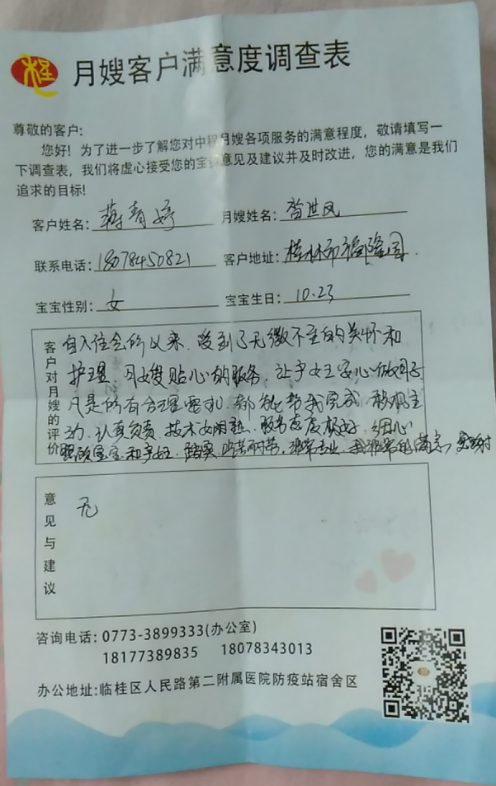 月嫂客户满意度调查表
尊敬的客户:
您好! 为了进一步了解您对中程月嫂各项服务的满意程度, 敬请填写一
下调查表, 我们将虚心接受您的宝贵意见及建议并及时改进, 您的满意是我们
追求的目标!
客户姓名: 蒋青婷 月嫂姓名: 世凤
联系电话: 18078450821 客户地址: 桂林市福隆园
宝宝性别: 女 宝宝生日: 10.23
客户对月嫂的评价
自入住会所以来, 受到了无微不至的关怀和
护理, 月嫂贴心的服务, 让产妇安心做月子
凡是所有合理需求, 都能帮我完成, 积极主
动, 认真负责, 技术娴熟, 服务态度极好, 细心
照顾宝宝和产妇, 踏实, 吃苦耐劳, 非常专业, 我非常的满意,
意见与建议
无
咨询电话: 0773-3899333(办公室)
18177389835 18078343013
办公地址: 临桂区人民路第二附属医院防疫站宿舍区